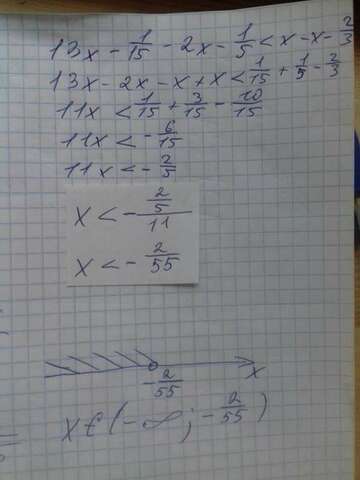 13x - 1/15 - 2x - 1/5 < x - x - 2/3
13x - 2x - x + x < 1/15 + 1/5 - 2/3
11x < 1/15 + 3/15 - 10/15
11x < - 6/15
11x < - 2/5
x < - 2/5/11
x < - 2/55
- 2/55 x
x ∈ (-∞; - 2/55)